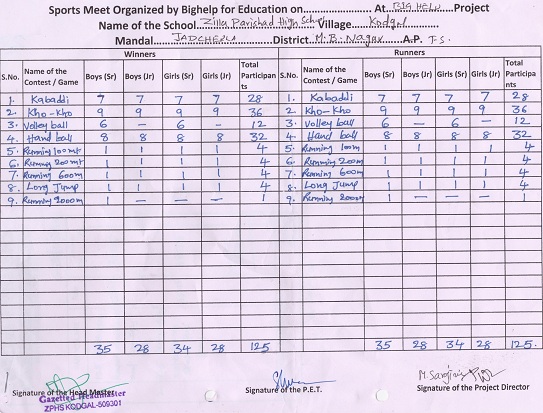 Sports Meet Organized by Bighelp for Education on............At BIGHELP Project
Name of the School Zilla Parishad High School Village Kodgal
Mandal JADCHERLA District M.B. Nagar A.P. T.S.
Winners Runners
S.No. Name of the Contest / Game Boys (Sr) Boys (Jr) Girls (Sr) Girls (Jr) Total Participants S.No. Name of the Contest / Game Boys (Sr) Boys (Jr) Girls (Sr) Girls (Jr) Total Participants
1. Kabaddi 7 7 7 7 28 1. Kabaddi 7 7 7 7 28
2. Kho-Kho 9 9 9 9 36 2. Kho-Kho 9 9 9 9 36
3. Volley ball 6 - 6 - 12 3. Volley ball 6 - 6 - 12
4. Hand ball 8 8 8 8 32 4. Hand ball 8 8 8 8 32
5. Running 100mt 1 1 1 1 4 5. Running 100m 1 1 1 1 4
6. Running 200mt 1 1 1 1 4 6. Running 200m 1 1 1 1 4
7. Running 600m 1 1 1 1 4 7. Running 600m 1 1 1 1 4
8. Long Jump 1 1 1 1 4 8. Long Jump 1 1 1 1 4
9. Running 2000m 1 — — — 1 9. Running 2000m 1 — — — 1
35 28 34 28 125 35 28 34 28 125.
Signature of the Head Master Signature of the P.E.T. Signature of the Project Director
Gazetted Headmaster
ZPHS KODGAL-509301